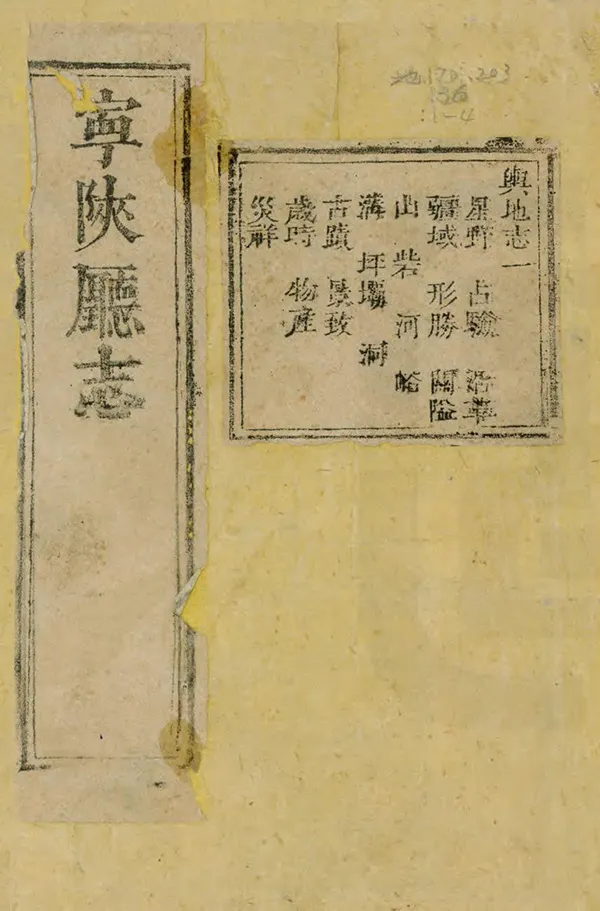 寧陝廳志
輿地志一
星野 占驗 沿革
疆域 形勝 關隘
山 砦 河 峪
溝 坪壩 洞
古蹟 景致
歲時 物産
災祥
地170.203
:36
:1-4